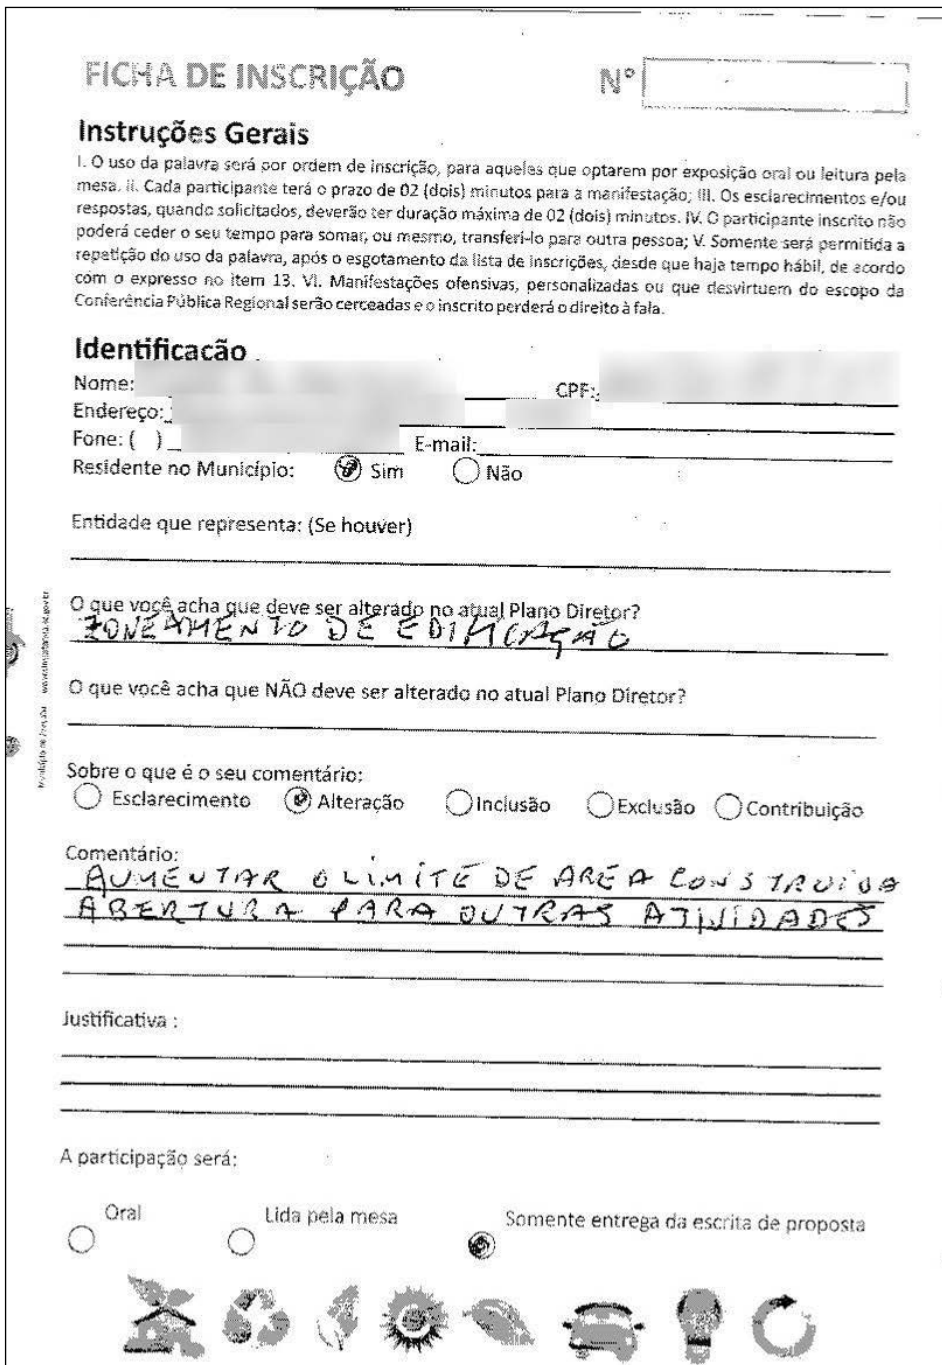 FICHA DE INSCRIÇÃO
Nº
Instruções Gerais
I. O uso da palavra será por ordem de inscrição, para aqueles que optarem por exposição oral ou leitura pela
mesa. II. Cada participante terá o prazo de 02 (dois) minutos para a manifestação; III. Os esclarecimentos e/ou
respostas, quando solicitados, deverão ter duração máxima de 02 (dois) minutos. IV. O participante inscrito não
poderá ceder o seu tempo para somar, ou mesmo, transferi-lo para outra pessoa; V. Somente será permitida a
repetição do uso da palavra, após o esgotamento da lista de inscrições, desde que haja tempo hábil, de acordo
com o expresso no item 13. VI. Manifestações ofensivas, personalizadas ou que desvirtuem do escopo da
Conferência Pública Regional serão cerceadas e o inscrito perderá o direito à fala.
Identificação
Nome: CPF:
Endereço:
Fone: ( ) E-mail:
Residente no Município: Sim Não
Entidade que representa: (Se houver)
O que você acha que deve ser alterado no atual Plano Diretor?
ZONEAMENTO DE EDIFICAÇÃO
O que você acha que NÃO deve ser alterado no atual Plano Diretor?
Sobre o que é o seu comentário:
Esclarecimento Alteração Inclusão Exclusão Contribuição
Comentário:
AUMENTAR O LIMITE DE AREA CONSTRUIDA
ABERTURA PARA OUTRAS ATIVIDADES
Justificativa :
A participação será:
Oral Lida pela mesa Somente entrega da escrita de proposta